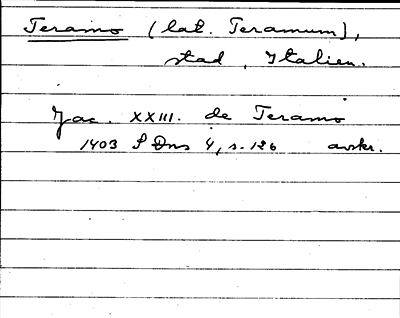 Teramo (lat. Teramum),
stad, Italien.
Jac. XXIII. de Teramo
1403 SDns 4, s. 126 avskr.